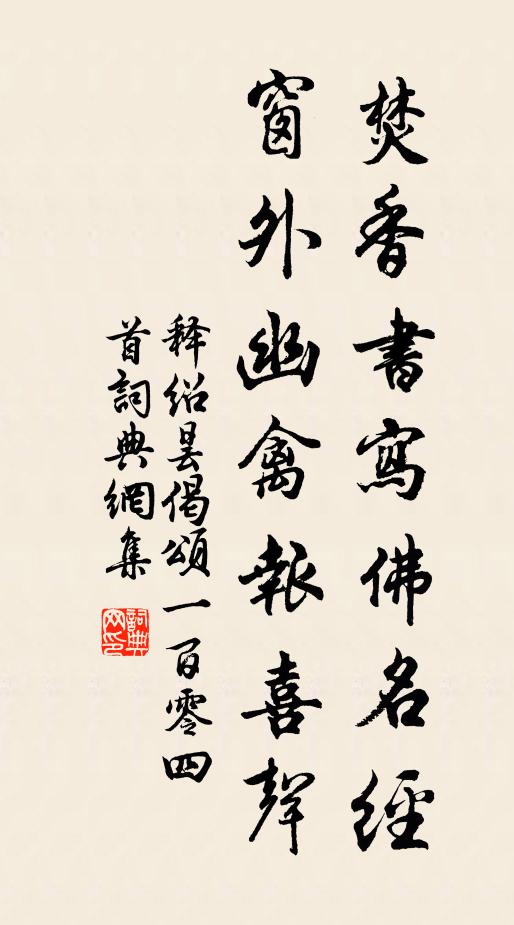 焚香書寫佛名經
窗外幽禽報喜聲
释绍昙偈頌一百零四
首詞典網集
詞典
网印